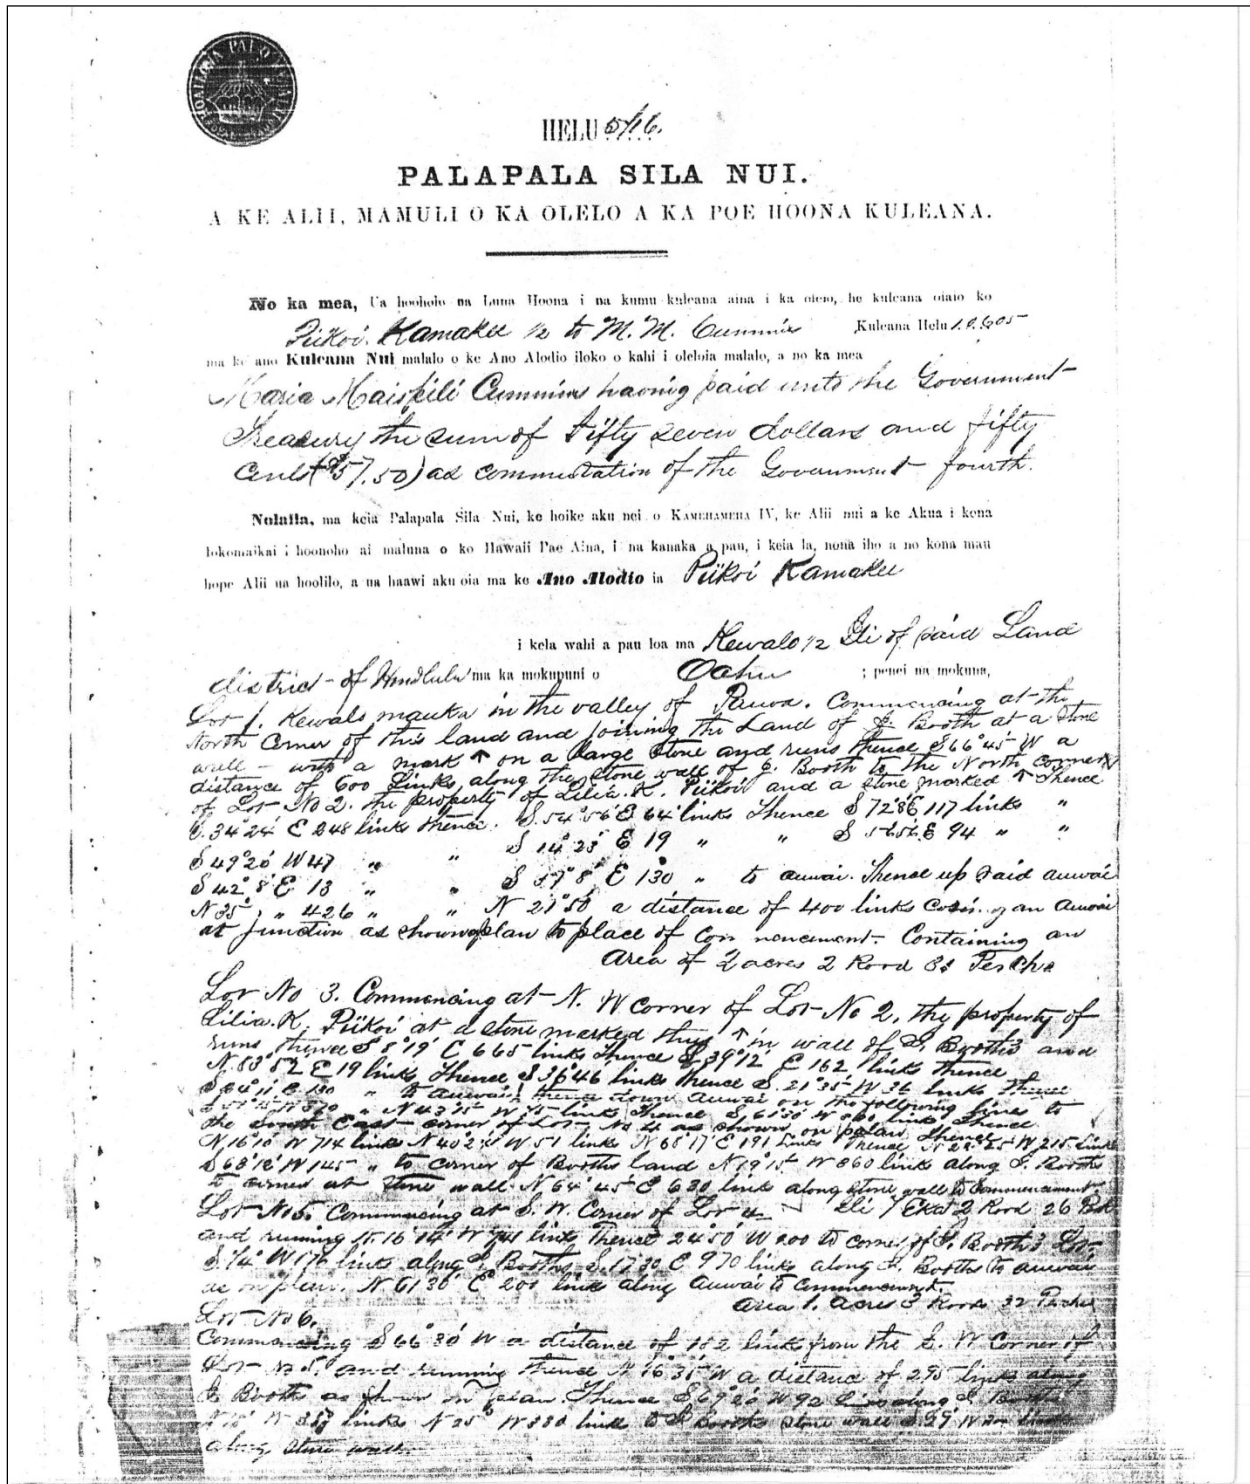 HELU 5716.
PALAPALA SILA NUI.
A KE ALII, MAMULI O KA OLELO A KA POE HOONA KULEANA.
No ka mea, Ua hooholo na Luna Hoona i na kumu kuleana aina i ka olelo, he kuleana oiaio ko
Piikoi. Kamakee 1/2 to M. M. Cummins Kuleana Helu 10,605
ma ke ano Kuleana Nui malalo o ke Ano Alodio iloko o kahi i oleloia malalo, a no ka mea
Maria Cummins having paid unto the Government
Treasury the sum of Fifty seven dollars and fifty
cents ($57.50) as commutation of the Government fourth.
Nolaila, ma keia Palapala Sila Nui, ke hoike aku nei o KAMEHAMEHA IV, ke Alii nui a ke Akua i kona
lokomaikai i hoonoho ai maluna o ko Hawaii Pae Aina, i na kanaka a pau, i keia la, nona iho a no kona mau
hope Alii ua hoolilo, a ua haawi aku oia ma ke Ano Alodio ia Piikoi Kamakee
i kela wahi a pau loa ma Kewalo 1/2 Ili of said Land
district of Honolulu ma ka mokupuni o Oahu ; penei na mokuna,
Lot 1. Kewalo mauka in the valley of Pauoa. Commencing at the
North Corner of this land and joining the Land of J. Booth at a Stone
wall - with a mark ↑ on a large Stone and runs thence S 66° 45' W a
distance of 600 links along the stone wall of J. Booth to the North corner
of Lot No 2. the property of Lilia. K. Piikoi and a stone marked ↑ Thence
S. 34° 24' E 248 links thence. S. 54° 56' E 64 links Thence S 72° 8' E 117 links "
S 49° 20' W 47 " " S 14° 23' E 19 " " S 56 E 94 " "
S 42° 8' E 13 " " S 57° 8' E 130 " to auwai. Thence up said auwai
N 35° " 426 " " N 21° 50' a distance of 400 links an Auwai
at junction as shown plan to place of Commencement. Containing an
Area of 2 acres 2 Rood Perchs
Lot No 3. Commencing at N. W corner of Lot No 2, the property of
Lilia. K. Piikoi at a stone marked thus ↑ in wall of J. Booth's and
runs thence S 8° 19' E 665 links thence S 39° 12' E 162 links thence
N. 83° 52' E 19 links Thence S 36° 46 links thence S. 21° 35' W 36 links thence
to auwai thence down auwai on the following lines to
the South East corner of Lot No 4 as shown on palan Thence
N 16° 10' W 714 links N 40 W 51 links N 68° 17' E 191 links Thence W 215 links
S 68° 18' W 145 " to corner of Booths land N 19° 15' W 860 links along J. Booths
to corner at Stone wall N 64° 45' E 630 links along stone wall to Commencement
Lot No 5. Commencing at S. W. Corner of Lot 4 2 Rood 26
and running N. 16° 14' W 741 links Thence 24° 50' W 200 to corner of J. Booth's Lot
S. 74° W 176 links along J. Booths S. 17° 30' E 970 links along J. Booths to auwai
as on plan. N. 61° 30' E 200 links along Auwai to Commencement.
Area 1. Acres 3 Rood 32 Perchs
Lot No 6.
Commencing S 66° 30' W a distance of 182 links from the S. W Corner of
Lot No 5. and running thence N 16° 35' W a distance of 295 links along
J. Booth as shown on plan. Thence S 69° 20' W 92 links along J. Booth
links N 25° W 330 links to J Booth's stone wall S. 29° W links
along stone wall